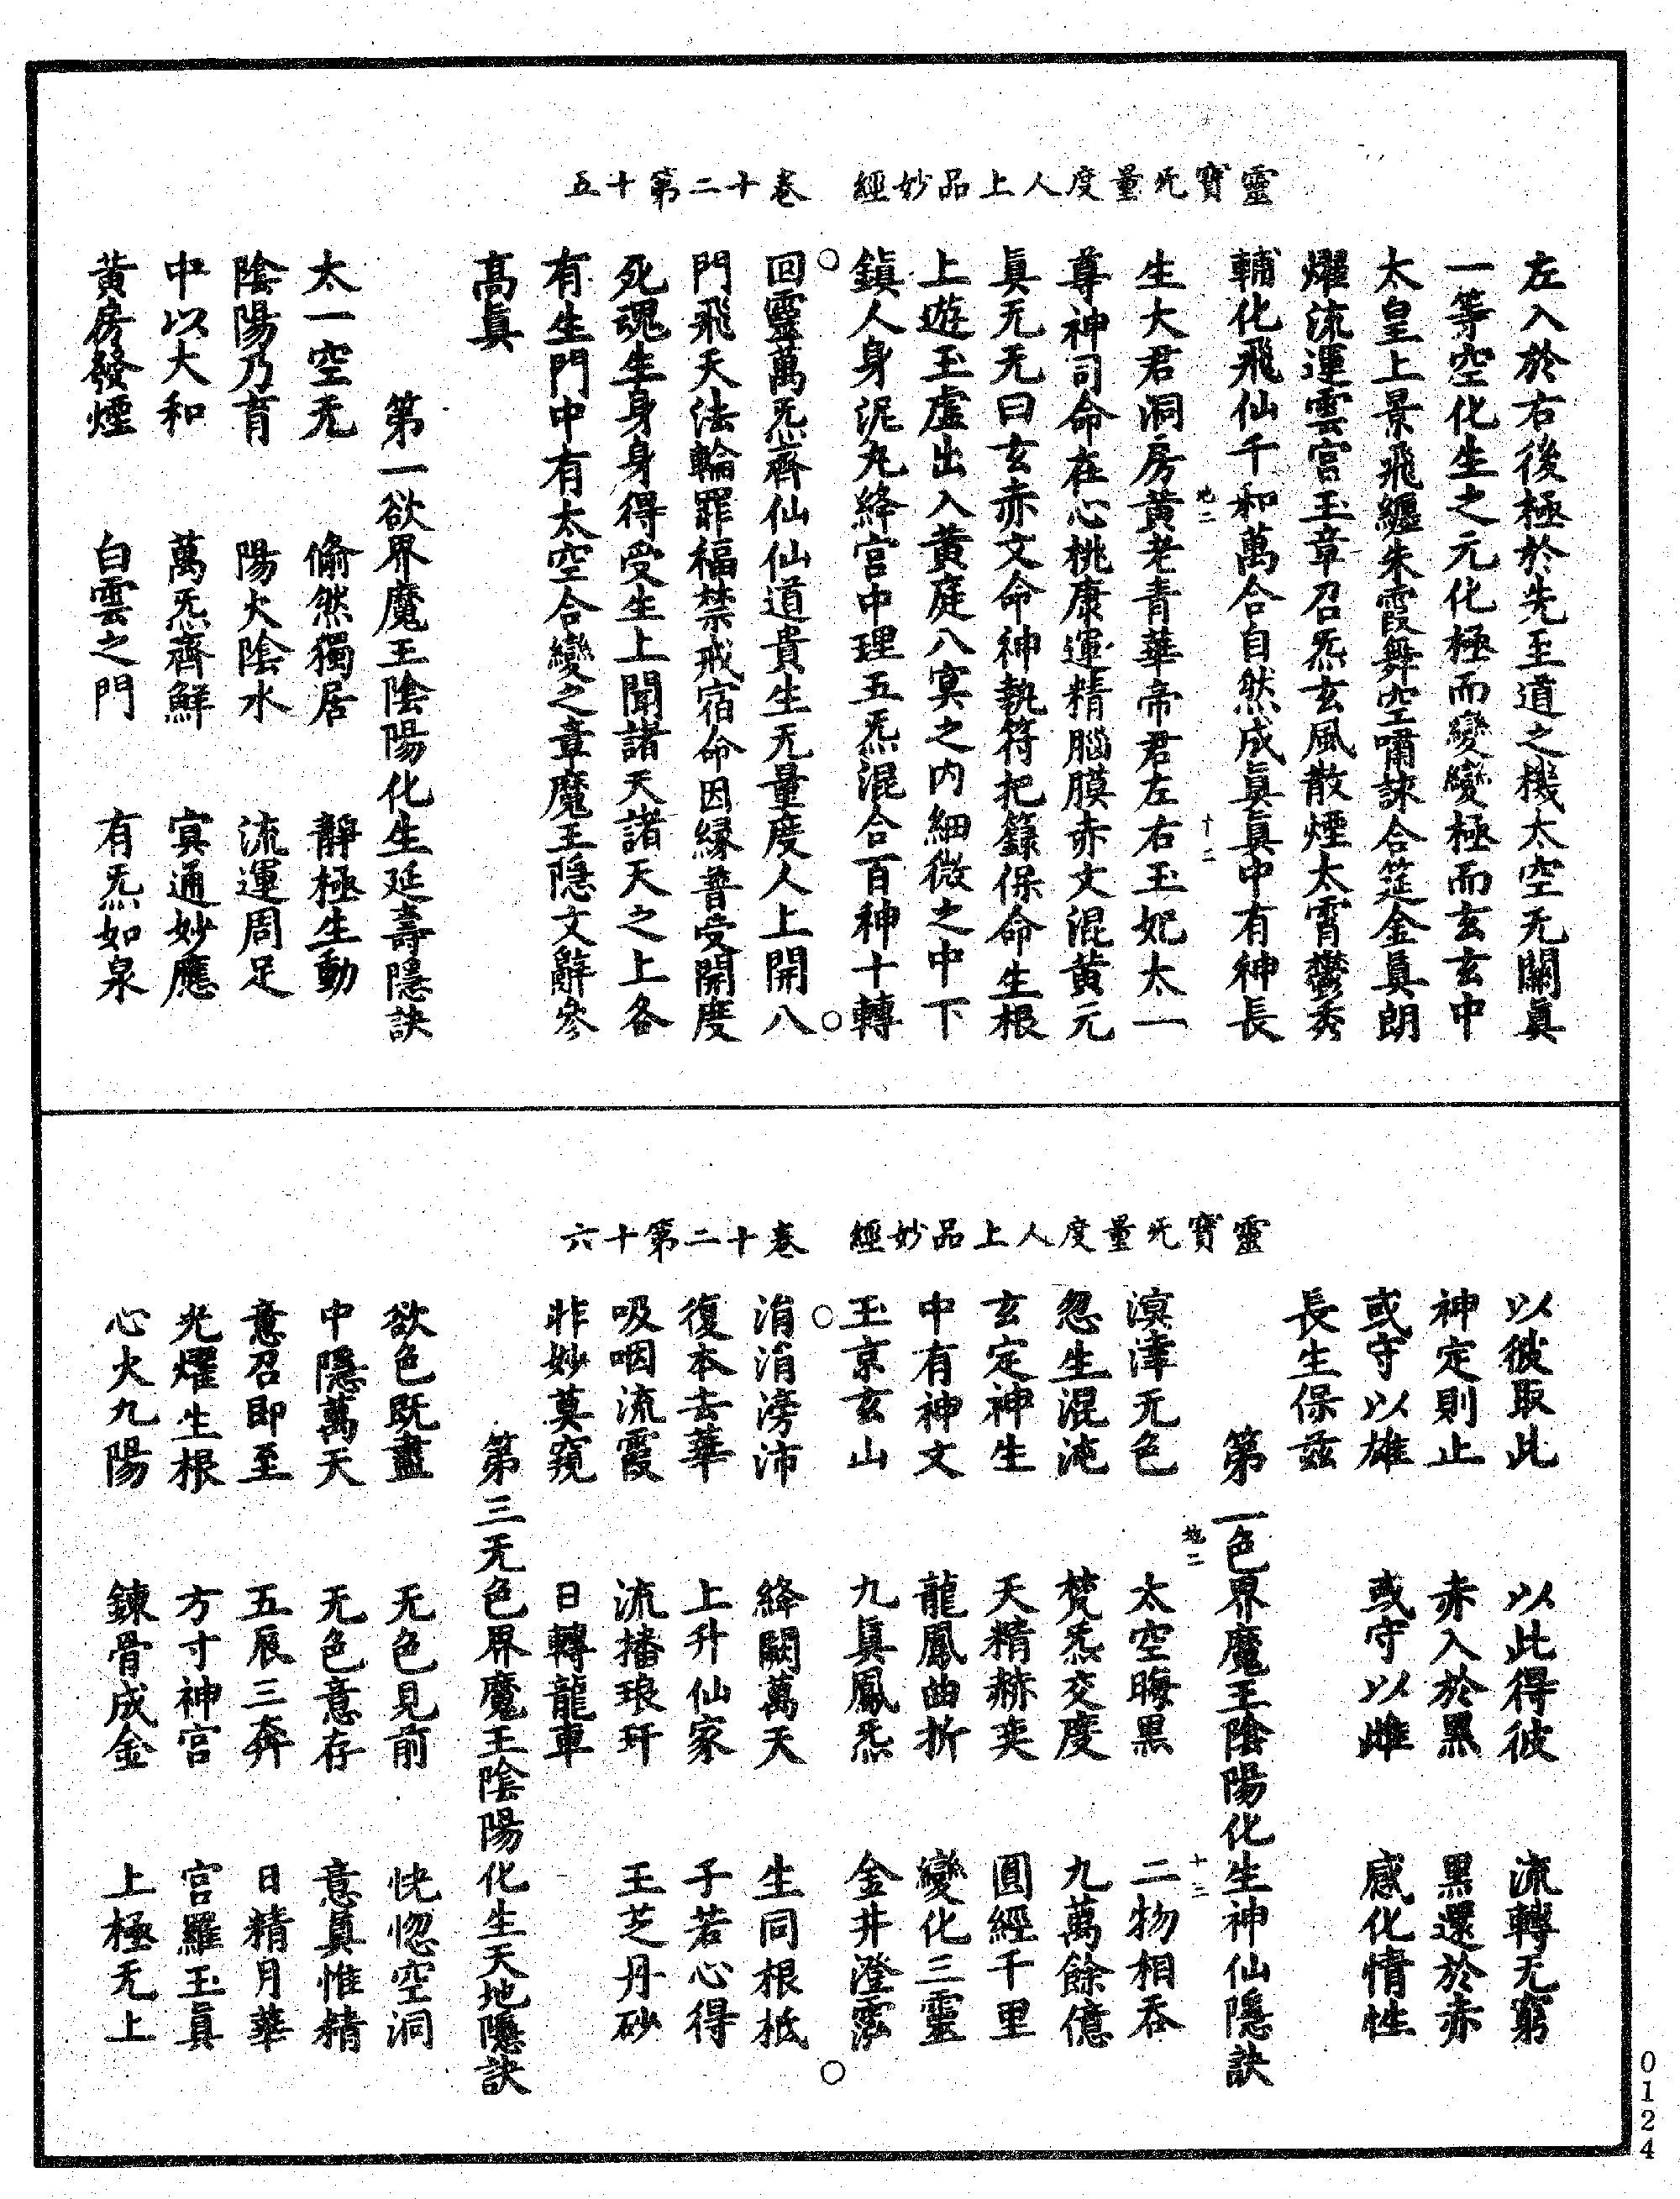 靈寶无量度人上品妙經　卷十二第十五
左入於右後極於先至道之機太空无關眞
一等空化生之元化極而變變極而玄玄中
太皇上景飛纏朱霞舞空嘯詠合筵金眞朗
燿流運雲宮玉章召炁玄風散煙太霄鬱秀
輔化飛仙千和萬合自然成眞眞中有神長
地二　十二
生大君洞房黃老青華帝君左右玉妃太一
尊神司命在心桃康運精腦膜赤文混黃元
眞无无曰玄赤文命神執符把籙保命生根
上遊玉虛出入黃庭八冥之内細微之中下
鎮人身泥丸絳宮中理五炁混合百神十轉
回靈萬炁齊仙仙道貴生无量度人上開八
門飛天法輪罪福禁戒宿命因緣普受開度
死魂生身身得受生上聞諸天諸天之上各
有生門中有太空合變之章魔王隱文辭參
高眞
第一欲界魔王陰陽化生延壽隱訣
太一空无　翛然獨居　靜極生動
陰陽乃育　陽火陰水　流運周足
中以大和　萬炁齊鮮　冥通妙應
黃房發煙　白雲之門　有炁如泉
靈寶无量度人上品妙經　卷十二第十六
以彼取此　以此得彼　流轉无窮
神定則止　赤入於黑　黑還於赤
或守以雄　或守以雌　感化情性
長生保兹
第一色界魔王陰陽化生神仙隱訣
地二　十三
溟涬无色　太空晦黑　二物相吞
忽生混沌　梵炁交度　九萬餘億
玄定神生　天精赫奕　圓經千里
中有神文　龍鳳曲折　變化三靈
玉京玄山　九眞鳳炁　金井澄霐
涓涓滂沛　絳闕萬天　生同根柢
復本去華　上升仙家　子若心得
吸咽流霞　流播琅玕　玉芝丹砂
非妙莫窺　日轉龍車
第三无色界魔王陰陽化生天地隱訣
欲色既盡　无色見前　恍惚空洞
中隱萬天　无色意存　意眞惟精
意召即至　五辰三奔　日精月華
光燿生根　方寸神宮　宮羅玉眞
心火九陽　鍊骨成金　上極无上
0124